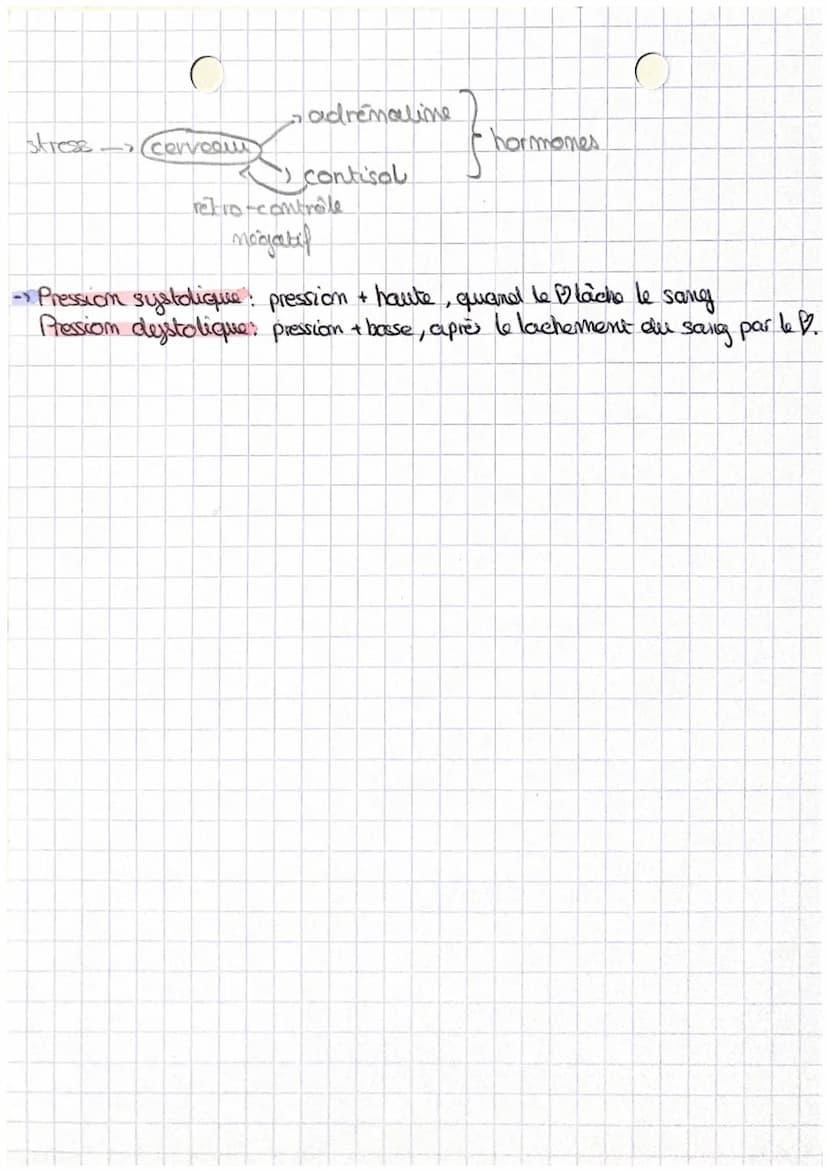 adrénaline
stress → cerveau } hormones
cortisol
rétro-contrôle
négatif
→ Pression systolique : pression + haute, quand le ♡ lâche le sang
Pression deystolique : pression + basse, après le lachement du sang par le ♡.